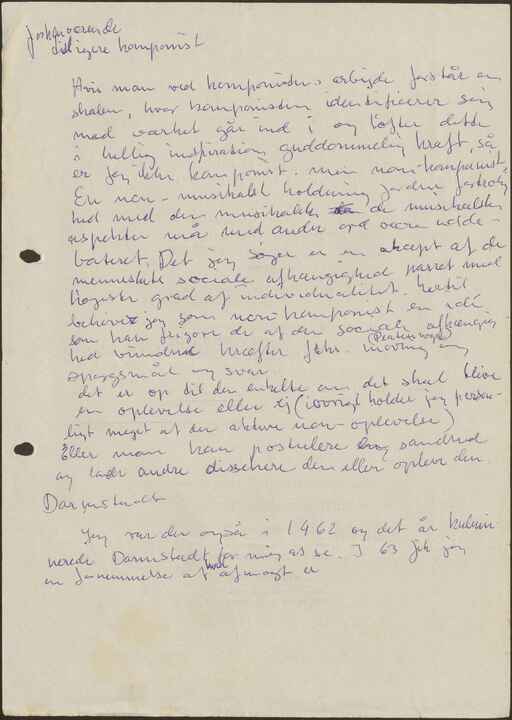 komponist
Hvis man ved komponistens arbejde forstår en
skalen, hvor komponisten identificerer sig
med værket går ind i og løfter dette
i hellig inspiration, guddommelig kraft, så
er jeg ikke komponist. men non-komponist.
En non-musikalsk holdning
hed med den musikalske de musikalske
aspekter må med andre ord være udde-
bateret. Det jeg søger er en accept af de
menneskets sociale afhængighed parret med
højeste grad af individualitet. hertil
behøver jeg som non-komponist en idé
som kan frigøre de af den sociale afhængig-
hed bundne kræfter f.eks. moving en
spørgsmål og svar.
det er op til den enkelte om det skal blive
en oplevelse eller ej (iøvrigt holder jeg person-
ligt meget af den aktive non-oplevelse)
Eller man kan postulere en sandhed
og lade andre dissekere den eller opleve den.
Darmstadt
Jeg var der også i 1962 og det år kulmi-
nerede Darmstadt for mig at se. I 63 fik jeg
en fornemmelse af afmagt